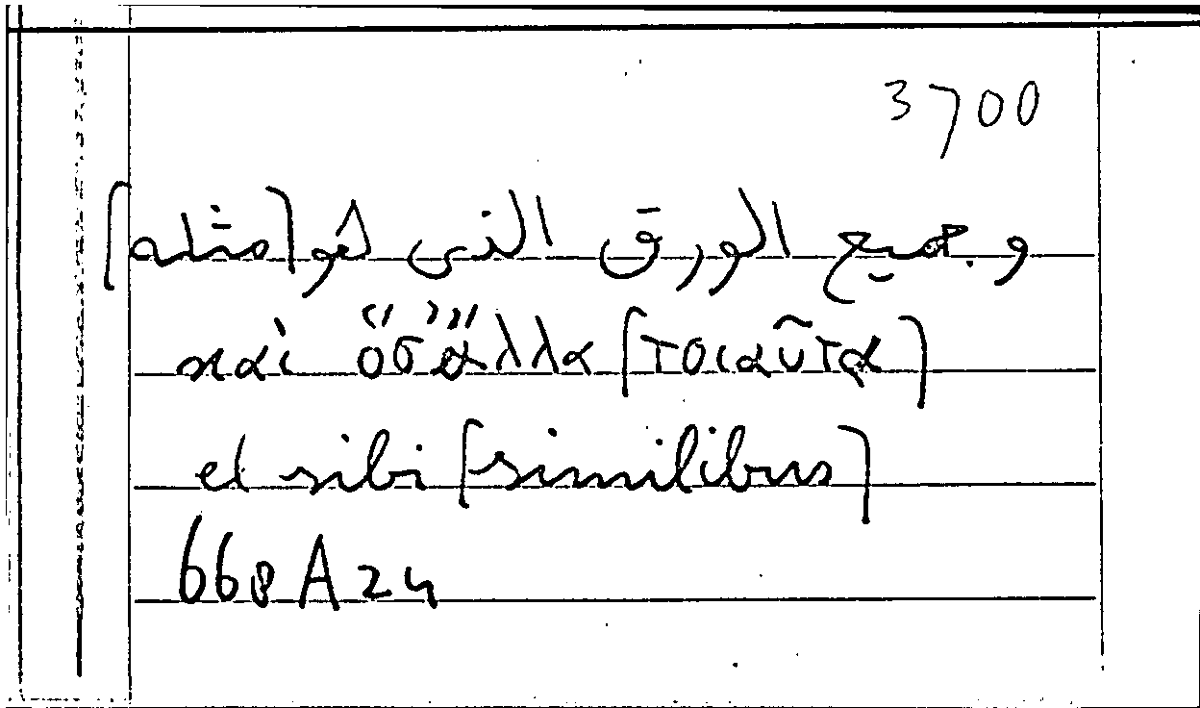 3700
وجميع الورق الذى هو [مثله]
καὶ ὅσα ἄλλα [τοιαῦτα]
et sibi [similibus]
668 A 24